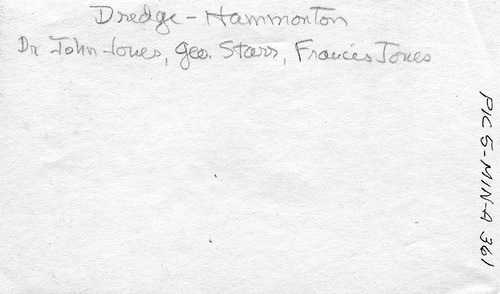 Dredge - Hammonton
Dr John Jones, Geo. Starr, Francis Jones
PIC S-MIN-A 361